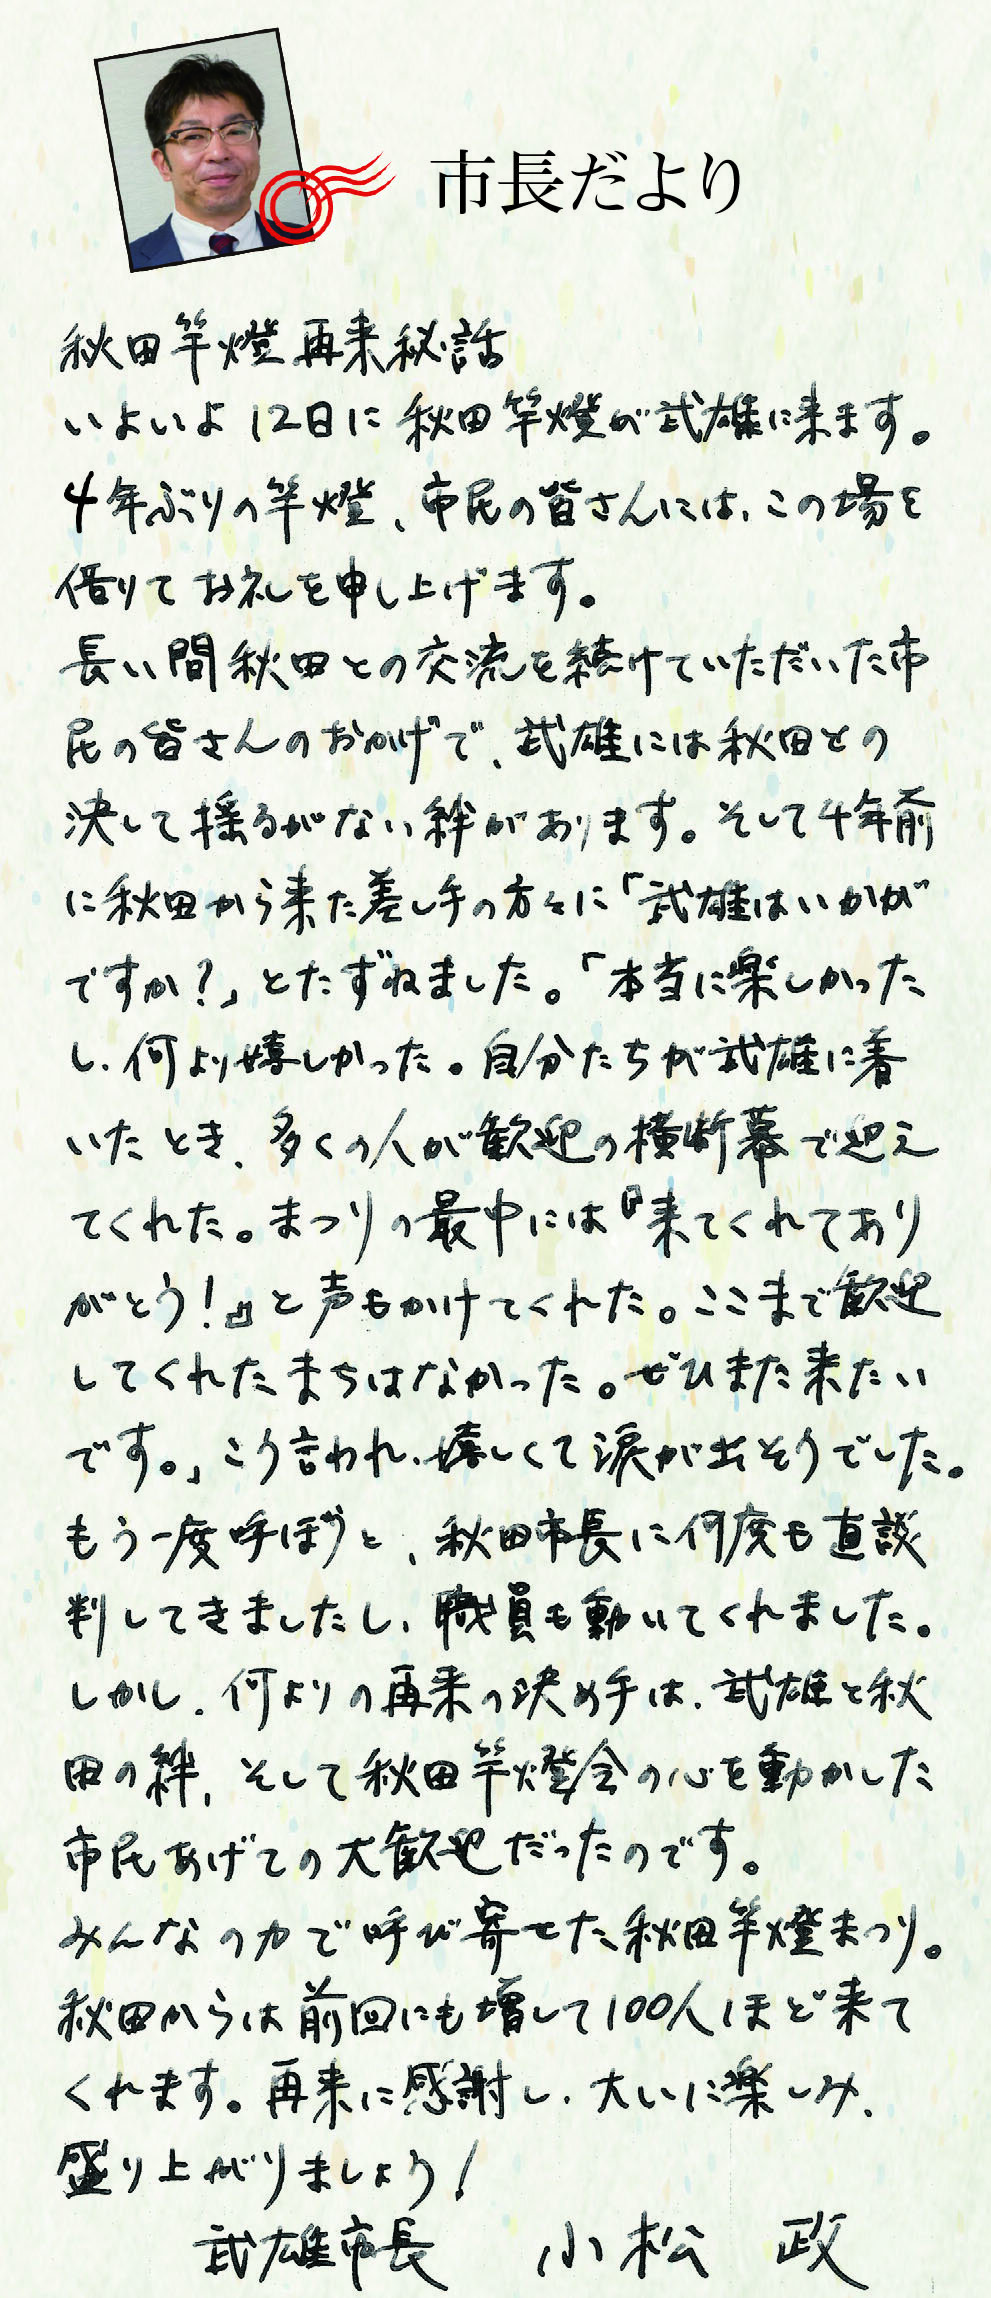 市長だより
秋田竿燈再来秘話
いよいよ12日に秋田竿燈が武雄に来ます。
4年ぶりの竿燈、市民の皆さんには、この場を
借りてお礼を申し上げます。
長い間秋田との交流を続けていただいた市
民の皆さんのおかげで、武雄には秋田との
決して揺るがない絆があります。そして4年前
に秋田から来た差し手の方々に「武雄はいかが
ですか?」とたずねました。「本当に楽しかった
し、何より嬉しかった。自分たちが武雄に着
いたとき、多くの人が歓迎の横断幕で迎え
てくれた。まつりの最中には『来てくれてあり
がとう!』と声もかけてくれた。ここまで歓迎
してくれたまちはなかった。ぜひまた来たい
です。」こう言われ、嬉しくて涙が出そうでした。
もう一度呼ぼうと、秋田市長に何度も直談
判してきましたし、職員も動いてくれました。
しかし、何よりの再来の決め手は、武雄と秋
田の絆、そして秋田竿燈会の心を動かした
市民あげての大歓迎だったのです。
みんなの力で呼び寄せた秋田竿燈まつり。
秋田からは前回にも増して100人ほど来て
くれます。再来に感謝し、大いに楽しみ、
盛り上がりましょう!
武雄市長 小松 政